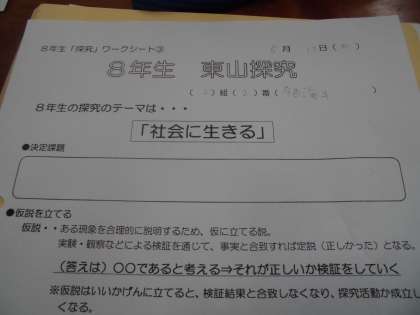 8年生「探究」ワークシート③
月 日( )
8年生 東山探究
( )組( )番( )
8年生の探究のテーマは・・・
「社会に生きる」
●決定課題
●仮説を立てる
仮説・・ある現象を合理的に説明するため、仮に立てる説。
実験・観察などによる検証を通じて、事実と合致すれば定説(正しかった)となる。
(答えは)〇〇であると考える⇒それが正しいか検証をしていく
※仮説はいいかげんに立てると、検証結果と合致しなくなり、探究活動が成立し
くなる。